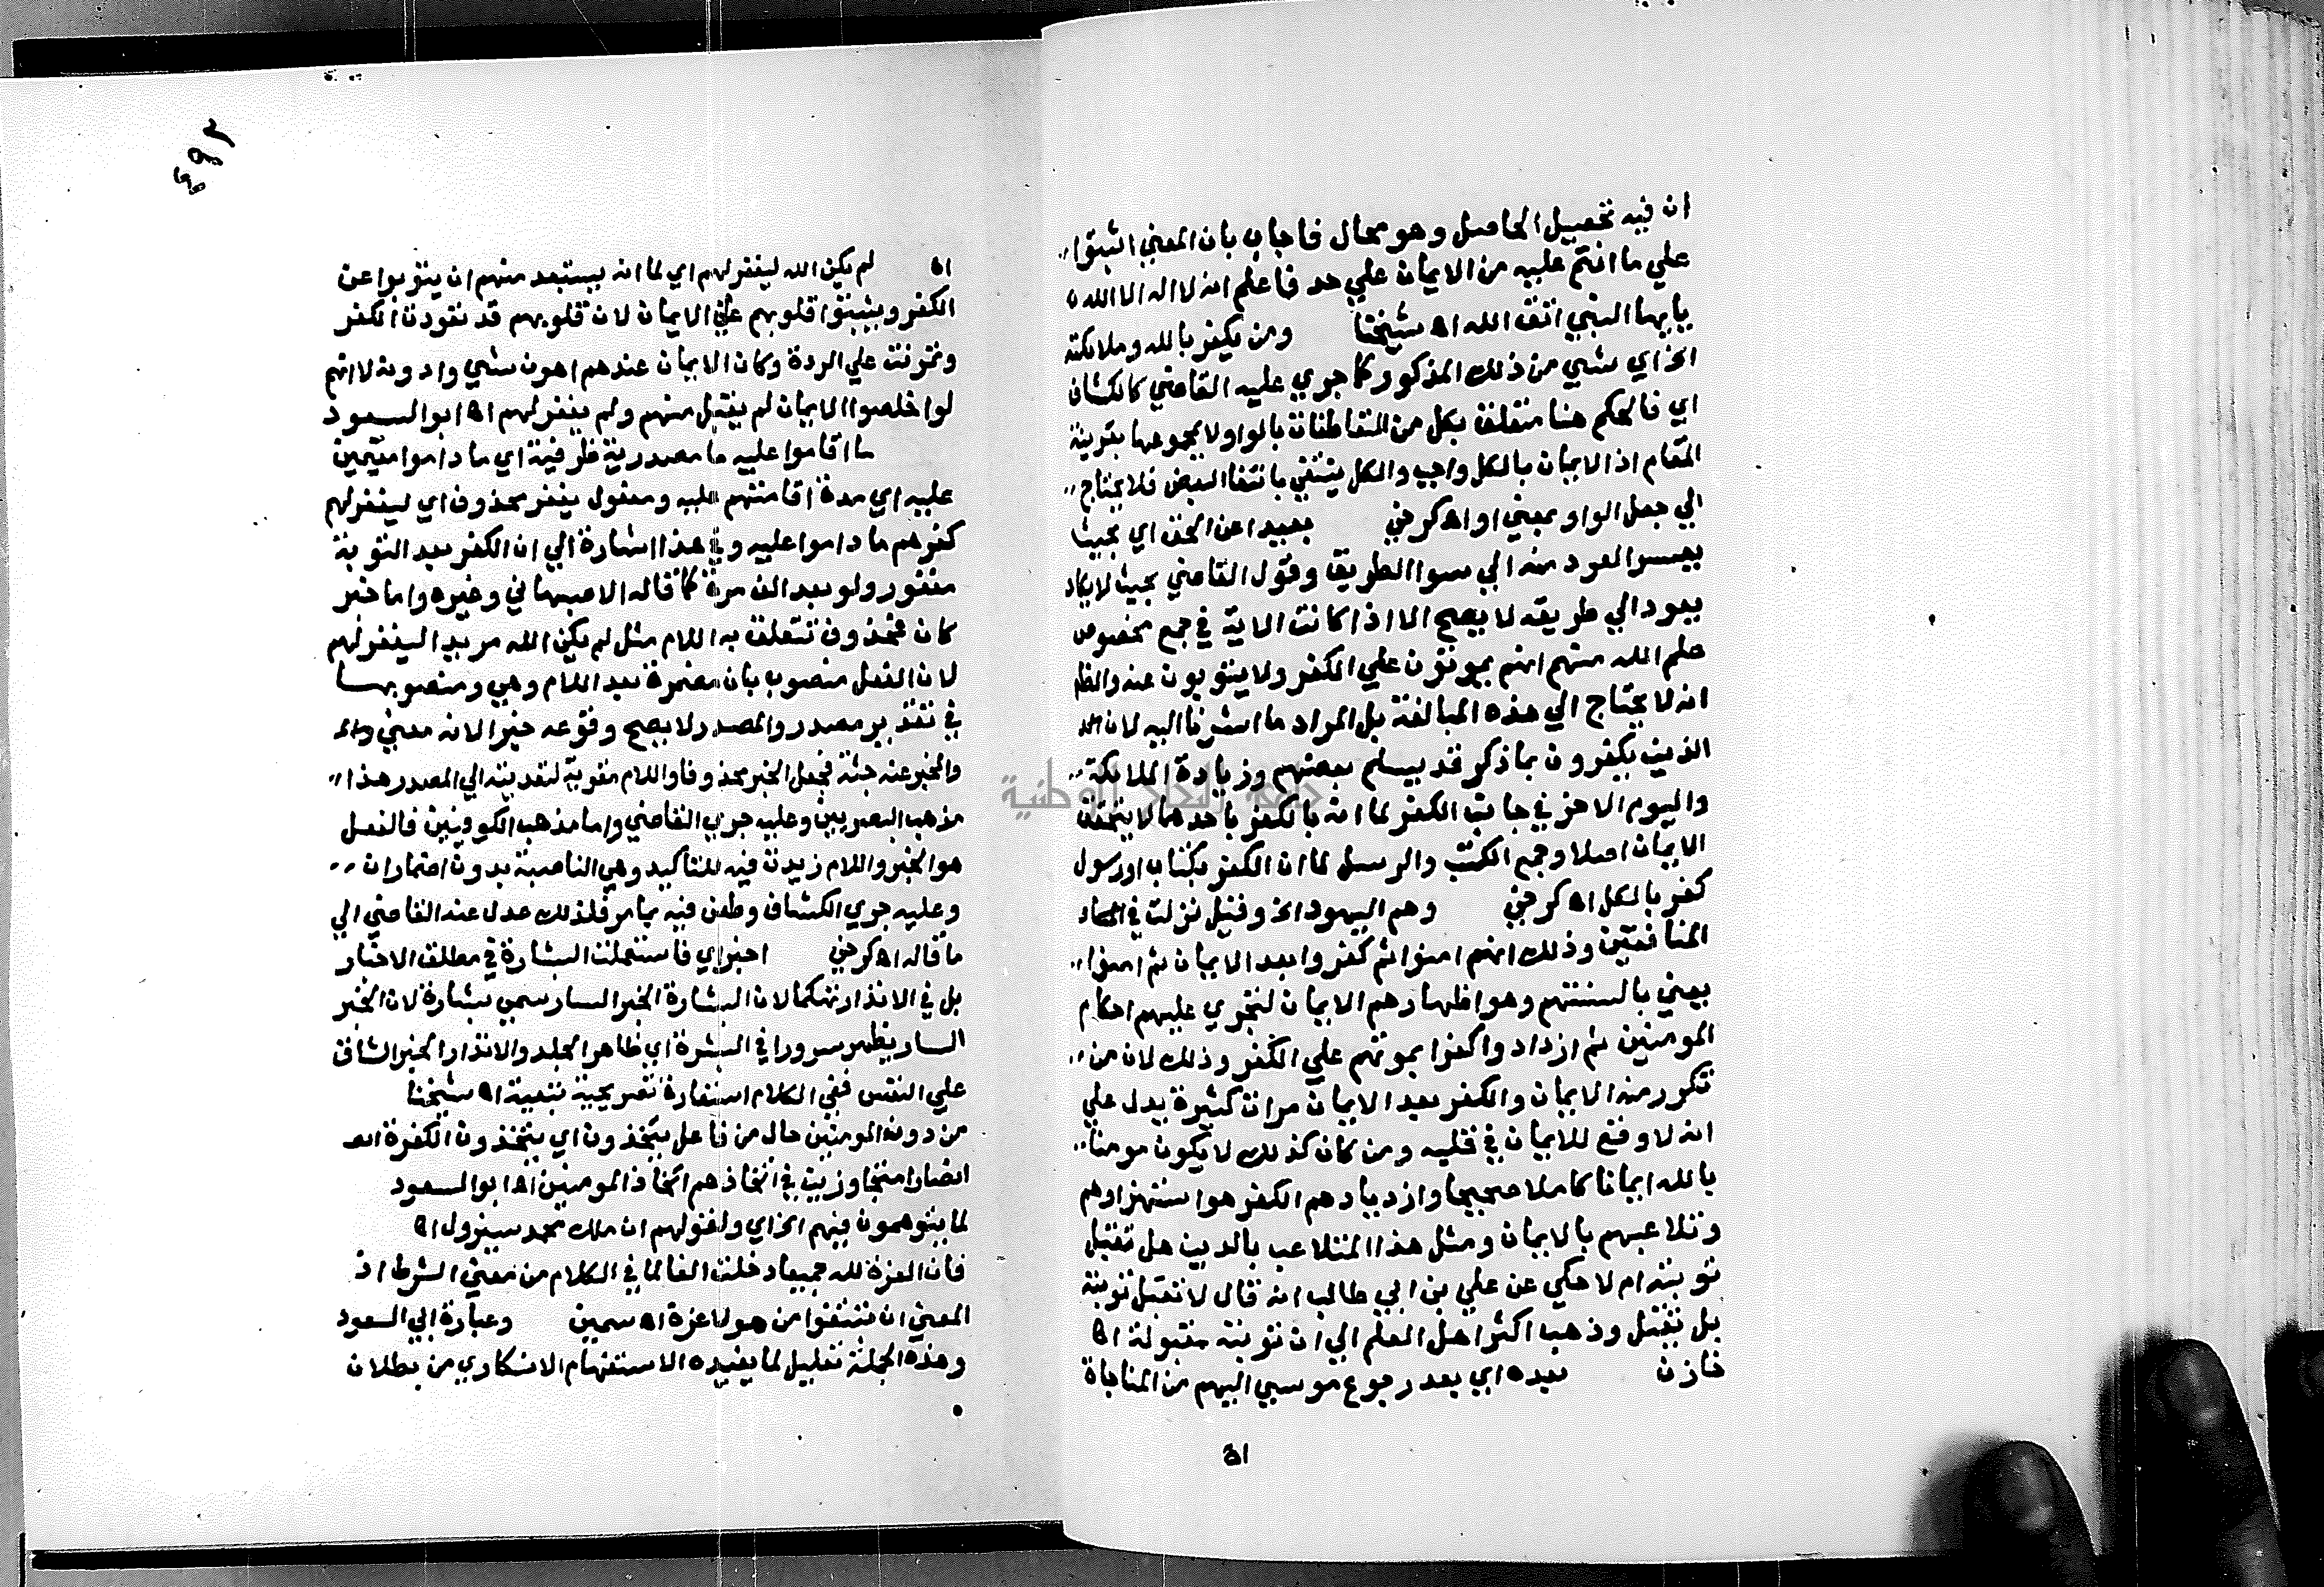 ان فيه تحصيل الحاصل وهو محال فاجاب بان المعني اثبتوا
علي ما انتم عليه من الايمان علي حد فاعلم انه لا اله الا الله
يايها النبي اتق الله اه شيخنا ومن يكفر بالله وملائكته
الخ اي بشي من ذلك المذكور كما جري عليه القاضي كالكشاف
اي فالحكم هنا متعلق بكل من المتعاطفات بالواو لا بمجموعها بقرينة
المقام اذ الايمان بالكل واجب والكل ينتفي بانتفا البعض فلا يحتاج
الي جعل الواو بمعني او اه كرخي بعيدا عن الحق اي بحيث
يعسر العود منه الي سوا الطريق وقول القاضي بحيث لا يكاد
يعود الي طريقه لا يصح الا اذا كانت الاية في جمع مخصوص
علم الله منهم انهم يموتون علي الكفر ولا يتوبون عنه والظاهر
انه لا يحتاج الي هذه المبالغة بل المراد ما اشرنا اليه لان
الذين يكفرون بما ذكر قد يسلم بعضهم وزيادة الملائكة
واليوم الاخر في جانب الكفر لما انه بالكفر باحدهما لا يتحقق
الايمان اصلا وجمع الكتب والرسل لما ان الكفر بكتاب او رسول
كفر بالكل اه كرخي وهم اليهود الخ وقيل نزلت في
المنافقين وذلك انهم امنوا ثم كفروا بعد الايمان ثم امنوا
يعني بالسنتهم وهو اظهارهم الايمان لتجري عليهم احكام
المومنين ثم ازدادوا كفرا بموتهم علي الكفر وذلك لان من
تكرر منه الايمان والكفر بعد الايمان مرات كثيرة يدل علي
انه لا وقع للايمان في قلبه ومن كان كذلك لا يكون مومنا
بالله ايمانا كاملا صحيحا وازديادهم الكفر هو استهزاوهم
وتلاعبهم بالايمان ومثل هذا المتلاعب بالدين هل تقبل
توبته ام لا حكي عن علي بن ابي طالب انه قال لا تقبل توبته
بل يقتل وذهب اكثر اهل العلم الي ان توبته مقبولة اه
خازن بعده اي بعد رجوع موسي اليهم من المناجاة
اه
٤٩٢
اه لم يكن الله ليغفر لهم اي لما انه يستبعد منهم ان يتوبوا عن
الكفر ويثبتوا قلوبهم علي الايمان لان قلوبهم قد تعودت الكفر
وتمرنت علي الردة وكان الايمان عندهم اهون شي وادونه لا انهم
لو اخلصوا الايمان لم يقبل منهم ولم يغفر لهم اه ابو السعود
ما اقاموا عليه ما مصدرية ظرفية اي ما داموا مقيمين
عليه اي مدة اقامتهم عليه ومفعول يغفر محذوف اي ليغفر لهم
كفرهم ما داموا عليه وفي هذا اشارة الي ان الكفر بعد التوبة
مغفور ولو بعد الف مرة كما قاله الاصبهاني وغيره واما خبر
كان فمحذوف تتعلق به اللام مثل لم يكن الله مريدا ليغفر لهم
لان الفعل منصوب بان مضمرة بعد اللام وهي ومنصوبها
في تقدير مصدر والمصدر لا يصح وقوعه خبرا لانه معني
والمخبر عنه جثة فجعل الخبر محذوفا واللام مقوية لتعديته الي المصدر هذا
مذهب البصريين وعليه جري القاضي واما مذهب الكوفيين فالفعل
هو الخبر واللام زيدت فيه للتاكيد وهي الناصبة بدون اضمار ان
وعليه جري الكشاف وطعن فيه بما مر فلذلك عدل عنه القاضي الي
ما قاله اه كرخي اخبر اي فاستعملت البشارة في مطلق الاخبار
بل في الانذار تهكما لان البشارة الخبر السار سمي بشارة لان الخبر
السار يظهر سرورا في البشرة اي ظاهر الجلد والانذار الخبر الشاق
علي النفس ففي الكلام استعارة تصريحية تبعية اه شيخنا
من دون المومنين حال من فاعل يتخذون اي يتخذون الكفرة
انصارا متجاوزين في اتخاذهم اتخاذ المومنين اه ابو السعود
لما يتوهمون فيهم الخ اي ولقولهم ان ملك محمد سيزول اه
فان العزة لله جميعا دخلت الفا لما في الكلام من معني الشرط اذ
المعني ان تبتغوا من هولا عزة اه سمين وعبارة ابي السعود
وهذه الجملة تعليل لما يفيده الاستفهام الانكاري من بطلان